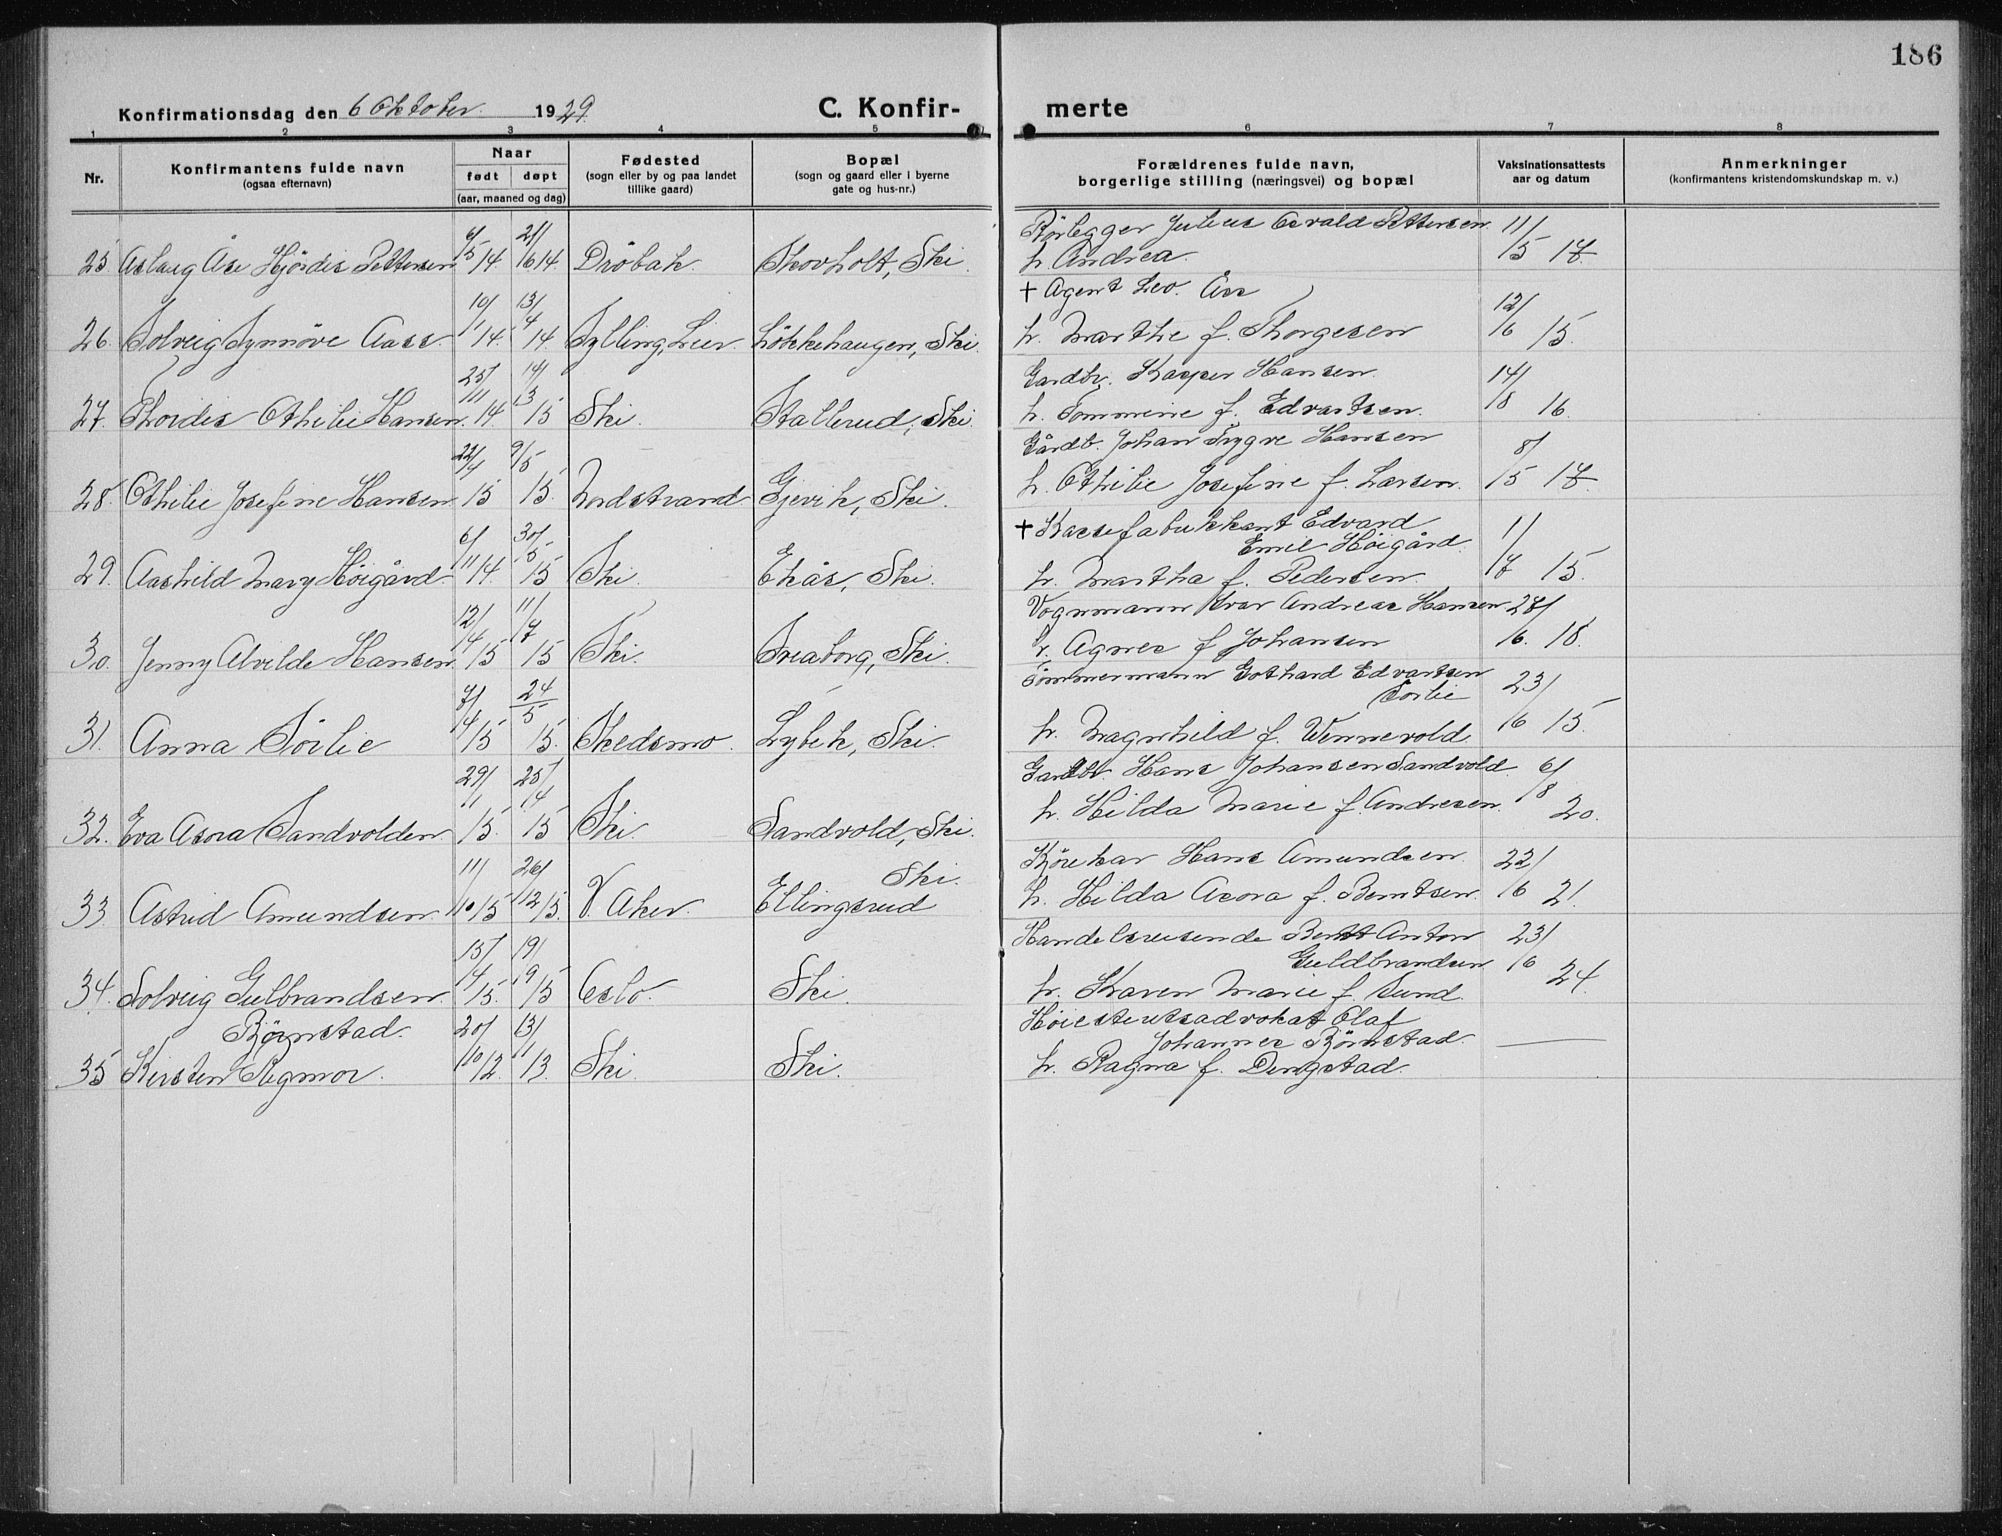 186
Konfirmationsdag den 6 Oktober 1929. C. Konfir- merte
1 2 3 4 5 6 7 8
Nr. Konfirmantens fulde navn (ogsaa efternavn) Naar født døpt (aar, maaned og dag) Fødested (sogn eller by og paa landet tillike gaard) Bopæl (sogn og gaard eller i byerne gate og hus-nr.) Forældrenes fulde navn, borgerlige stilling (næringsvei) og bopæl Vaksinationsattests aar og datum Anmerkninger (konfirmantens kristendomskundskap m. v.)
Rörlegger Julius Osvald Pettersen 11/
25 Aslaug Åse Hjördis Pettersen 6/5 14. 21/6 14. Dröbak Skovholt, Ski. h. Andrea. 5 17.
† Agent Leo. Ås 12/
26. Solveig Synnöve Aass. 10/1 14. 13/4 14 Sylling, Lier. Lökkehaugen, Ski. h. Marthe f. Thorgesen 6 15.
Gardbr. Kasper Hansen. 14/
27. Thordis Othilie Hansen. 25/11 14. 14/3 15 Ski. Stallerud, Ski. h. Sommine f. Edvartsen. 8 16.
Gårdb. Johan Trygve Hansen 8/
28. Othilie Josefine Hansen. 22/4 15 9/5 15. Nordstrand Gjevik, Ski. h. Othilie Josefine f. Larsen. 5 17.
† Kassefabrikkant Edvard
Emil Höigård. 1/
29. Aashild Mary Höigård 6/11 14. 30/5 15 Ski. Ekås, Ski. h. Martha f. Pedersen. 7 15.
Vognmann Ivar Andreas Hansen 27/
30. Jenny Alvilde Hansen. 12/4 15 11/7 15 Ski. Sveaborg, Ski. h. Agnes f. Johansen 6. 18.
Tömmermann Gothard Edvartsen
Sörlie 23/
31. Anna Sörlie 7/4 15 24/5 15. Skedsmo. Lybek, Ski. h. Magnhild f. Wennevold 6 15.
Gardbr. Hans Johansen Sandvold. 6/
32. Eva Asora Sandvolden 29/1 15. 25/4 15 Ski. Sandvold, Ski. h. Hilda Marie f. Andresen. 8 20.
Körekar Hans Amundsen. 22/
Ski.
33. Astrid Amundsen. 11/10 15 26/12 15. V. Aker. Ellingsrud h. Hilda Asora f. Berntsen. 6 21.
Handelsreisende Bernt Anton 23/
Guldbrandsen 6
34. Solveig Gulbrandsen. 15/4 15. 19/9 15 Oslo. Ski. h. Karen Marie f. Sund. 24.
Höiesteretsadvokat Olaf
Börnstad. Johannes Börnstad. —
35 Kirsten Sigmor. 20/10 12. 13/11 13. Ski. Ski. h. Ragna f. Dingstad.